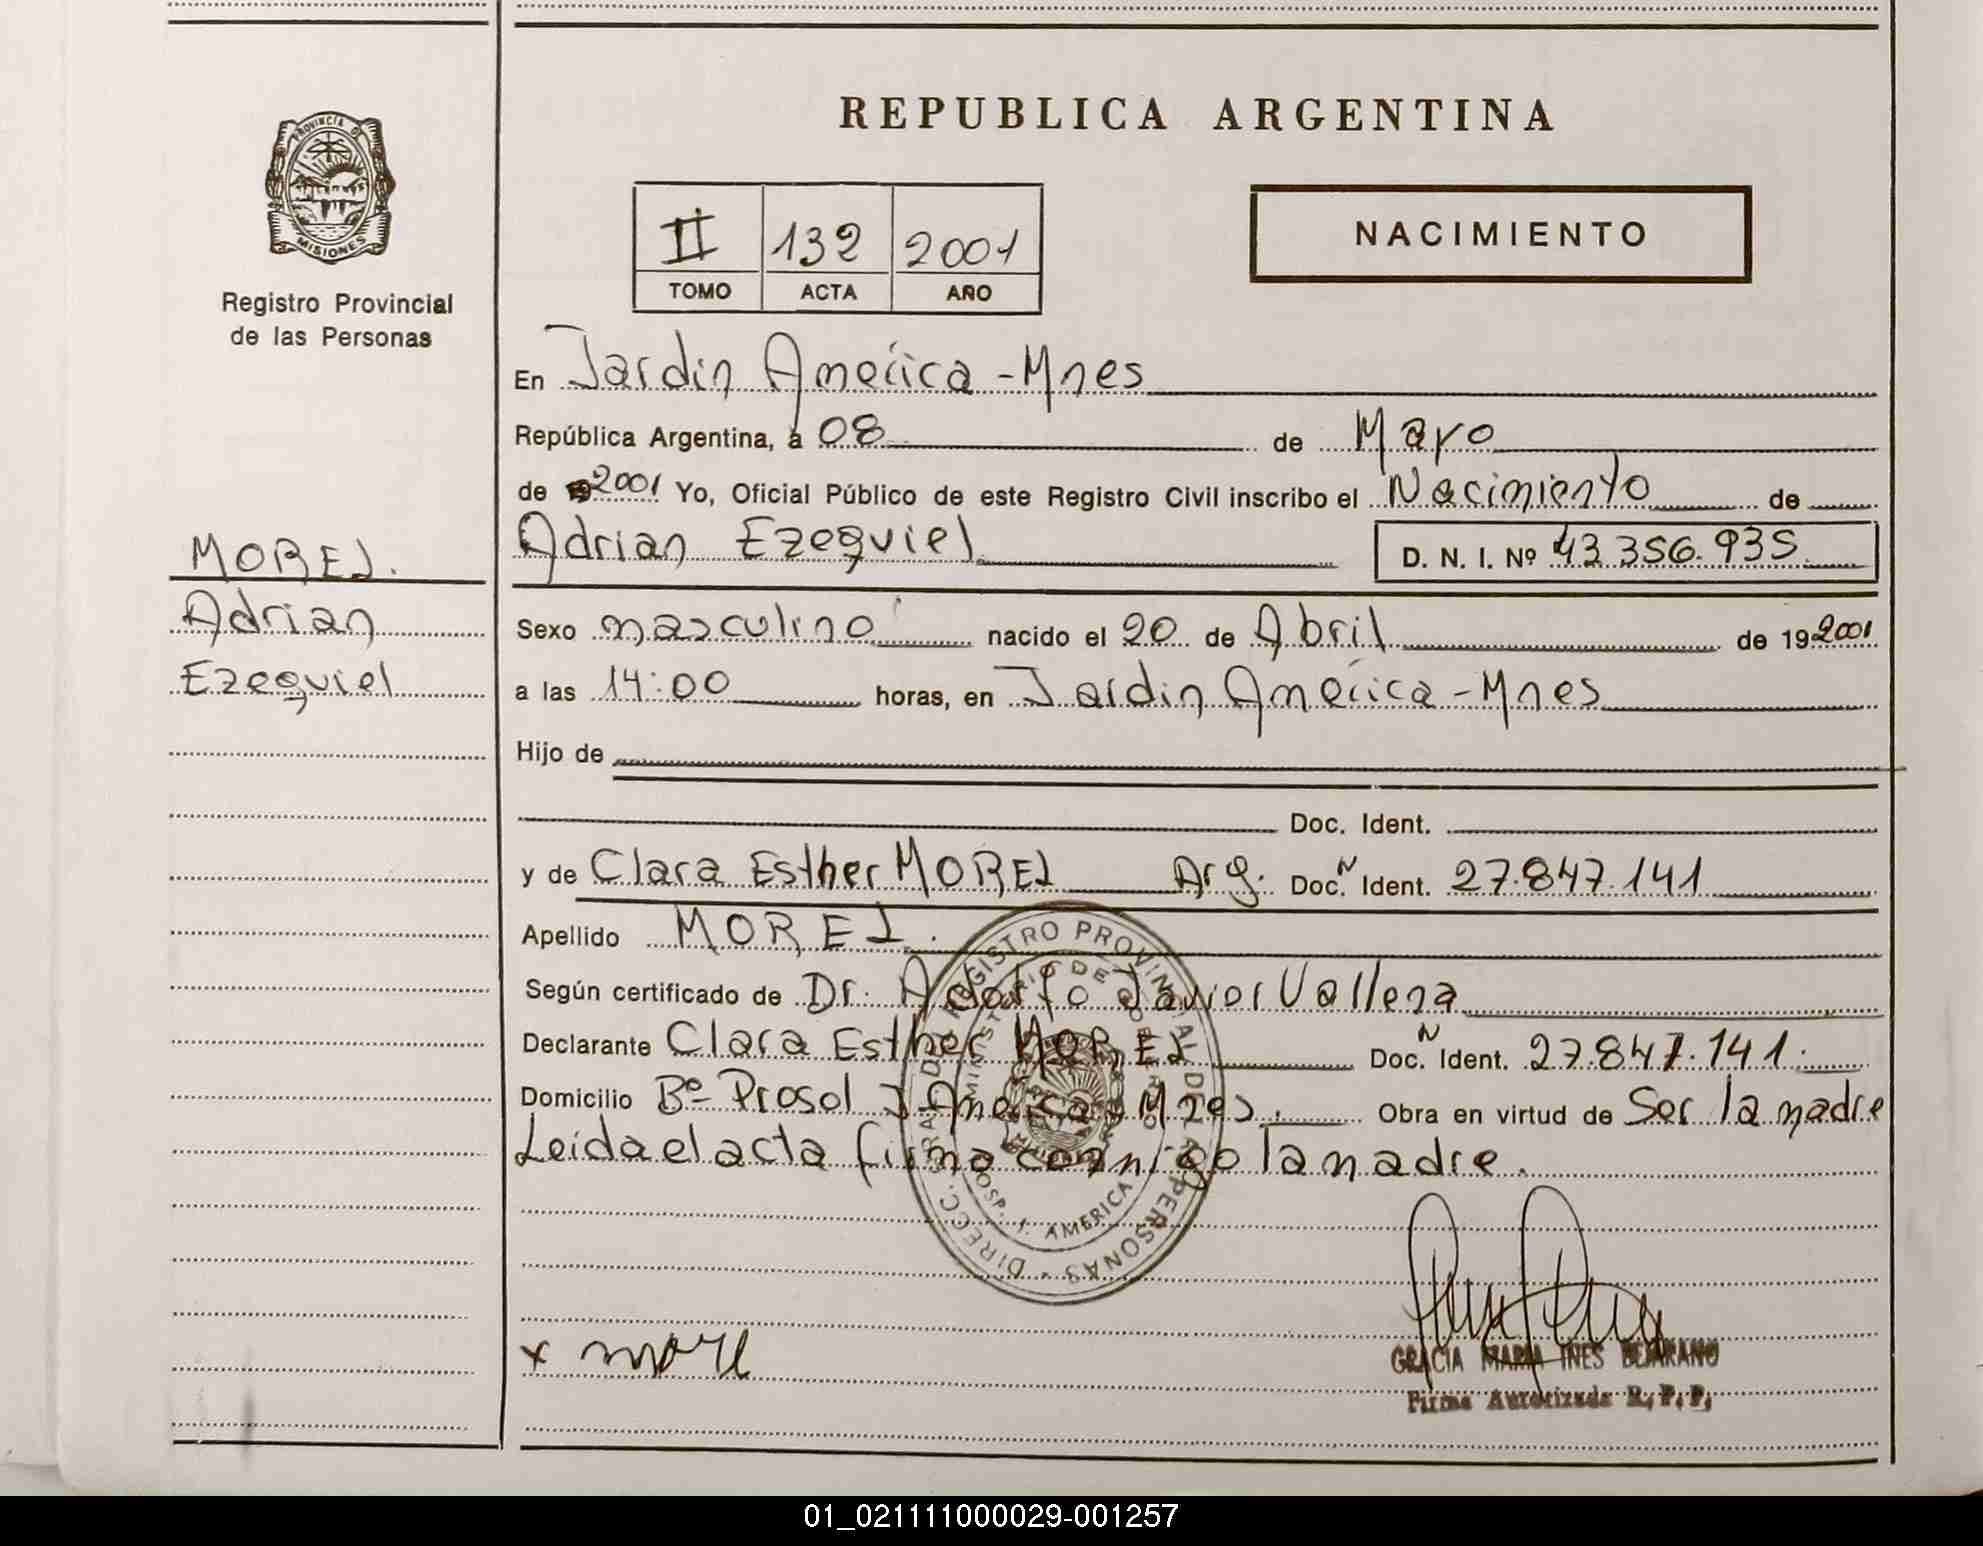 REPUBLICA ARGENTINA
PROVINCIA DE
MISIONES
Registro Provincial
de las Personas
II 132 2001
TOMO ACTA AÑO
NACIMIENTO
En Jardin América - Mnes
República Argentina, a 08 de Mayo
de 2001 Yo, Oficial Público de este Registro Civil inscribo el Nacimiento de
Adrian Ezequiel D. N. I. Nº 43.356.935
MOREL.
Adrian
Ezequiel
Sexo masculino nacido el 20 de Abril de 19 2001
a las 14:00 horas, en Jardin América - Mnes
Hijo de
Doc. Ident.
y de Clara Esther MOREL Arg. Doc. N Ident. 27.847.141
Apellido MOREL.
Según certificado de Dr. Adolfo Javier Vallega
Declarante Clara Esther MOREL Doc. N Ident. 27.847.141.
Domicilio Bº Prosol J. América Mnes. Obra en virtud de Ser la madre
Leida el acta firma conmigo la madre.
DIRECC. GRAL. DEL REGISTRO PROVINCIAL DE LAS PERSONAS
MINISTERIO DE GOBIERNO
HOSP. J. AMERICA
x more
GRACIA MARIA INES BEJARANO
Firma Autorizada R. P. P.
01_021111000029-001257